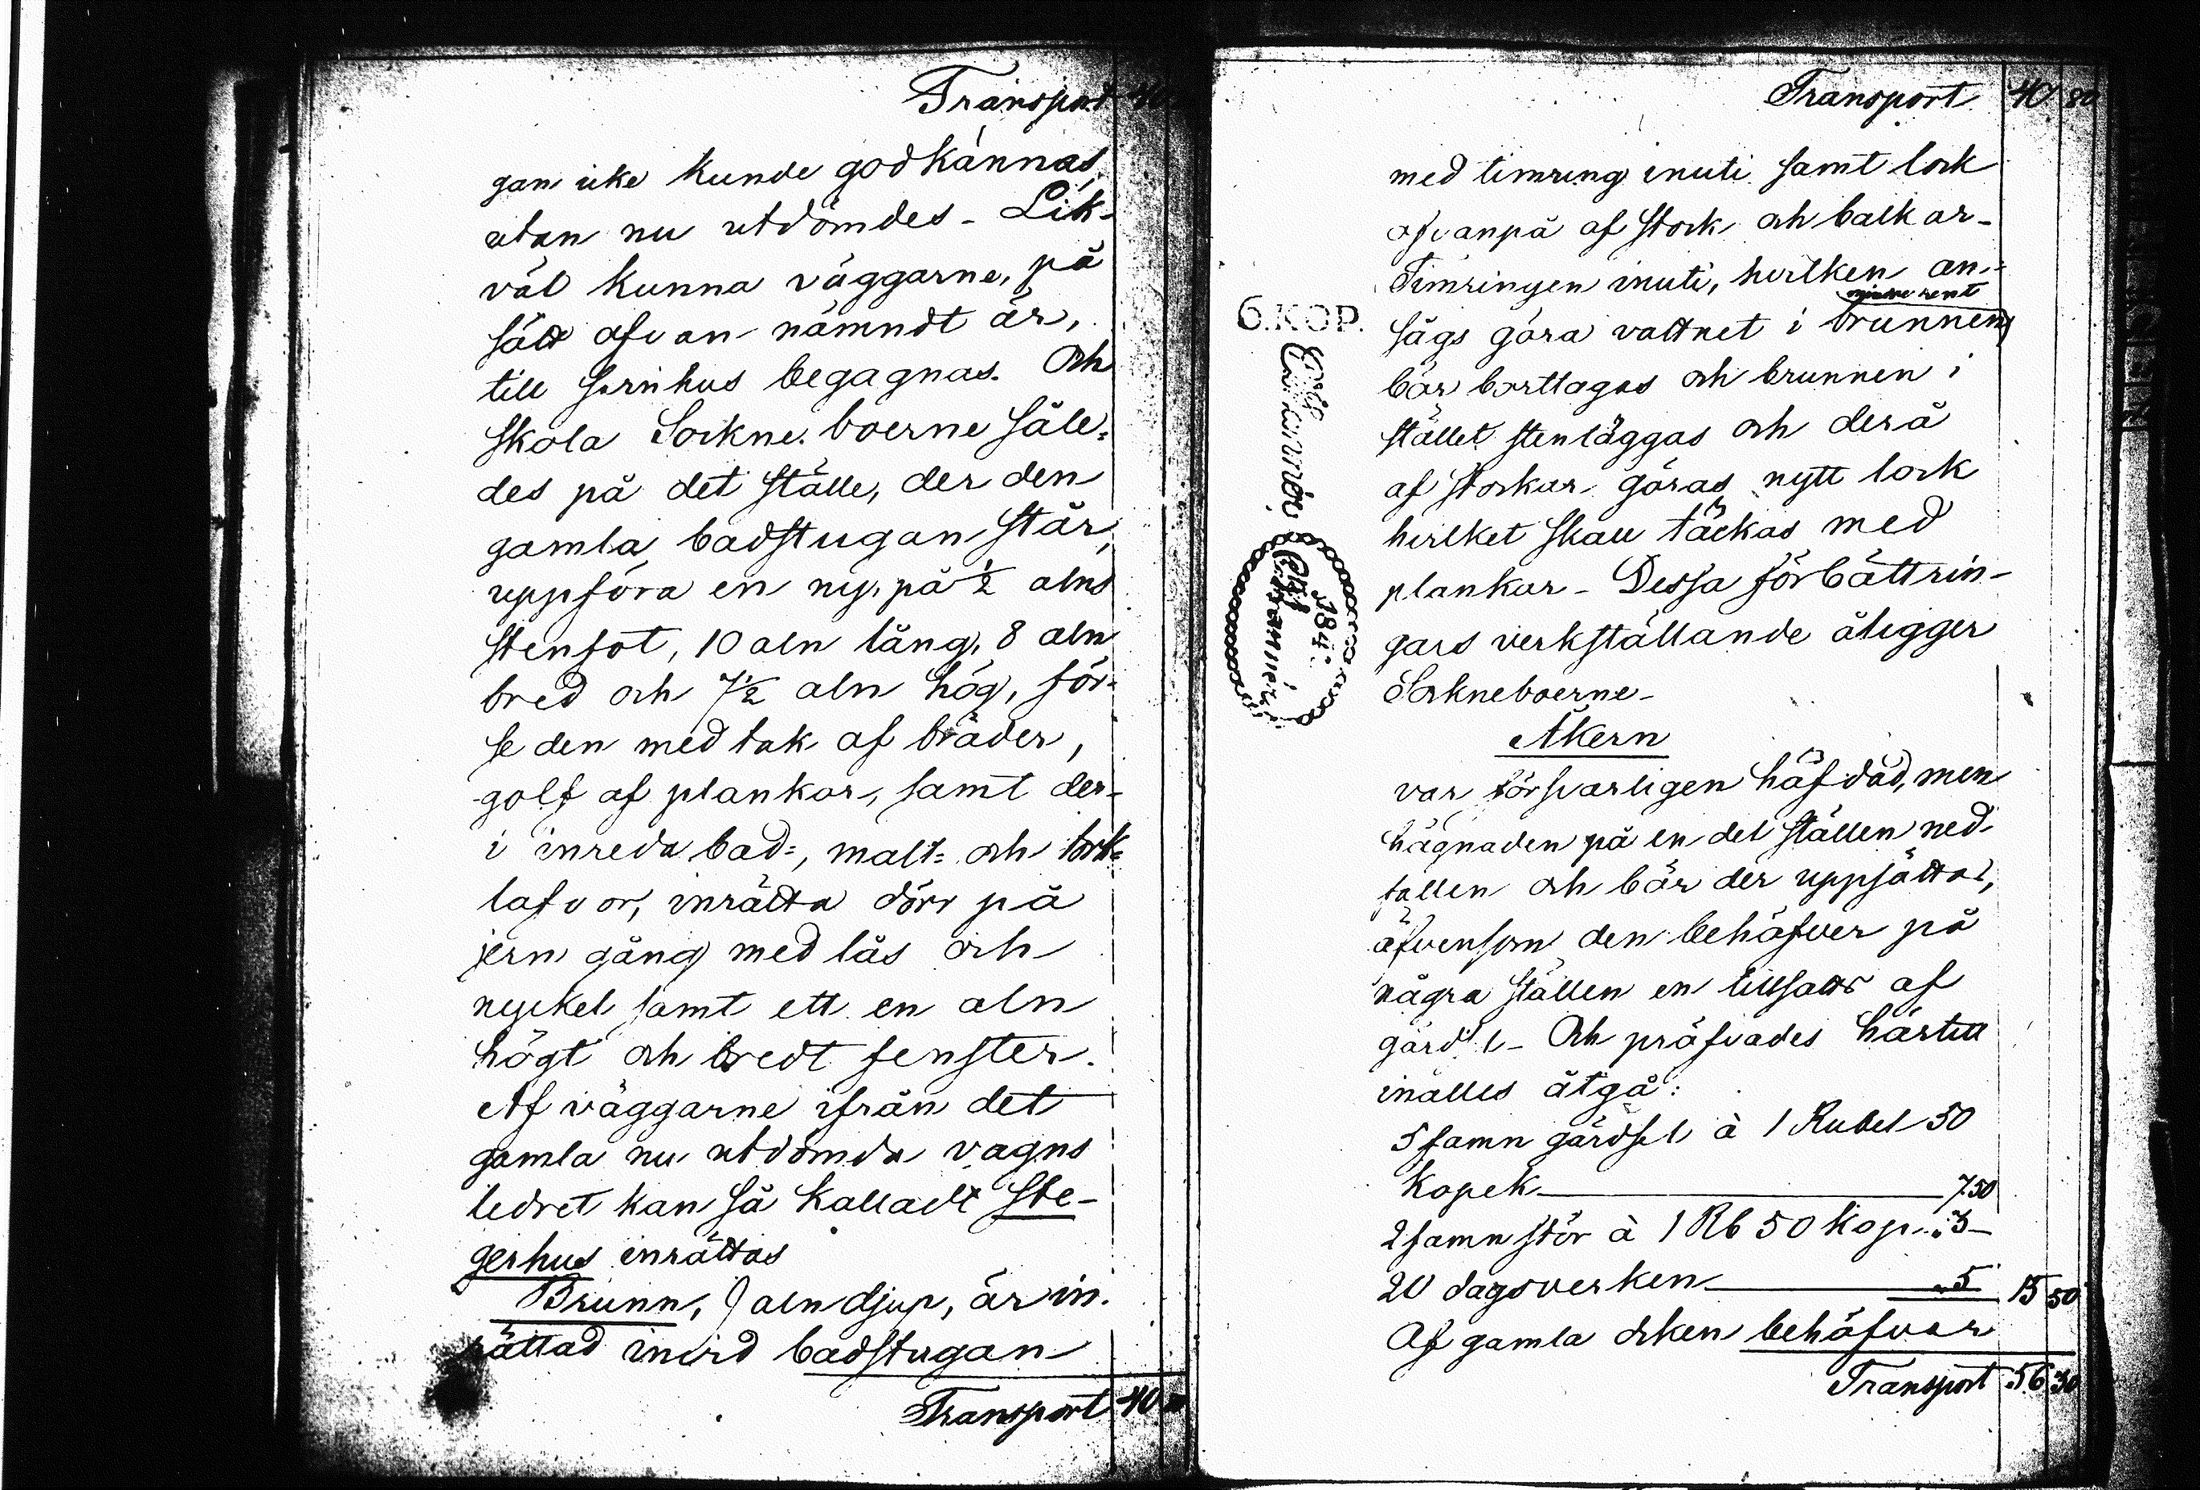 Transport 40
gan icke kunde godkännas,
utan nu utdömdes - Lik-
väl kunna väggarne, på
sätt ofvan nämndt är,
till svinhus begagnas. Och
skola Sockne-boerne såle-
des på det ställe, der den
gamla badstugan står,
uppföra en ny, på ½ alns
stenfot, 10 aln lång, 8 aln
bred och 7½ aln hög, för-
se den med tak af bräder,
golf af plankor, samt der-
i inreda bad=, malt= och tork=
lafvor, inrätta dörr på
jern gång med lås och
nyckel samt ett en aln
högt och bredt fenster.
Af väggarne ifrån det
gamla nu utdömda vagns
lidret kan så kalladt Ste-
gerhus inrättas
Brunn, 9 aln djup, är in-
rättad invid badstugan
Transport 40
Transport 40 80
med timring inuti samt lock
ofvanpå af stock och balkar-
Timringen inuti, hvilken an-
mindre rent
sågs göra vattnet i brunnen,
bör borttagas och brunnen i
stället stenläggas och derå
af stockar göras nytt lock
hvilket skall täckas med
plankor - Dessa förbättrin-
gars verkställande åligger
Sockneboerne-
Åkern
var försvarligen häfdad, men
hägnaden på en del ställen ned-
fallen och bör der uppsättas,
äfvensom den behöfver på
några ställen en tillsats af
gärdsel - Och pröfvades härtill
inalles åtgå:
5 famn gärdsel à 1 Rubel 50
Kopek 7.50
2 famn stör à 1 Rb 50 Kop. 3-
20 dagsverken 5 15 50
Af gamla åken behöfver
Transport 56 30
6. KOP.
184